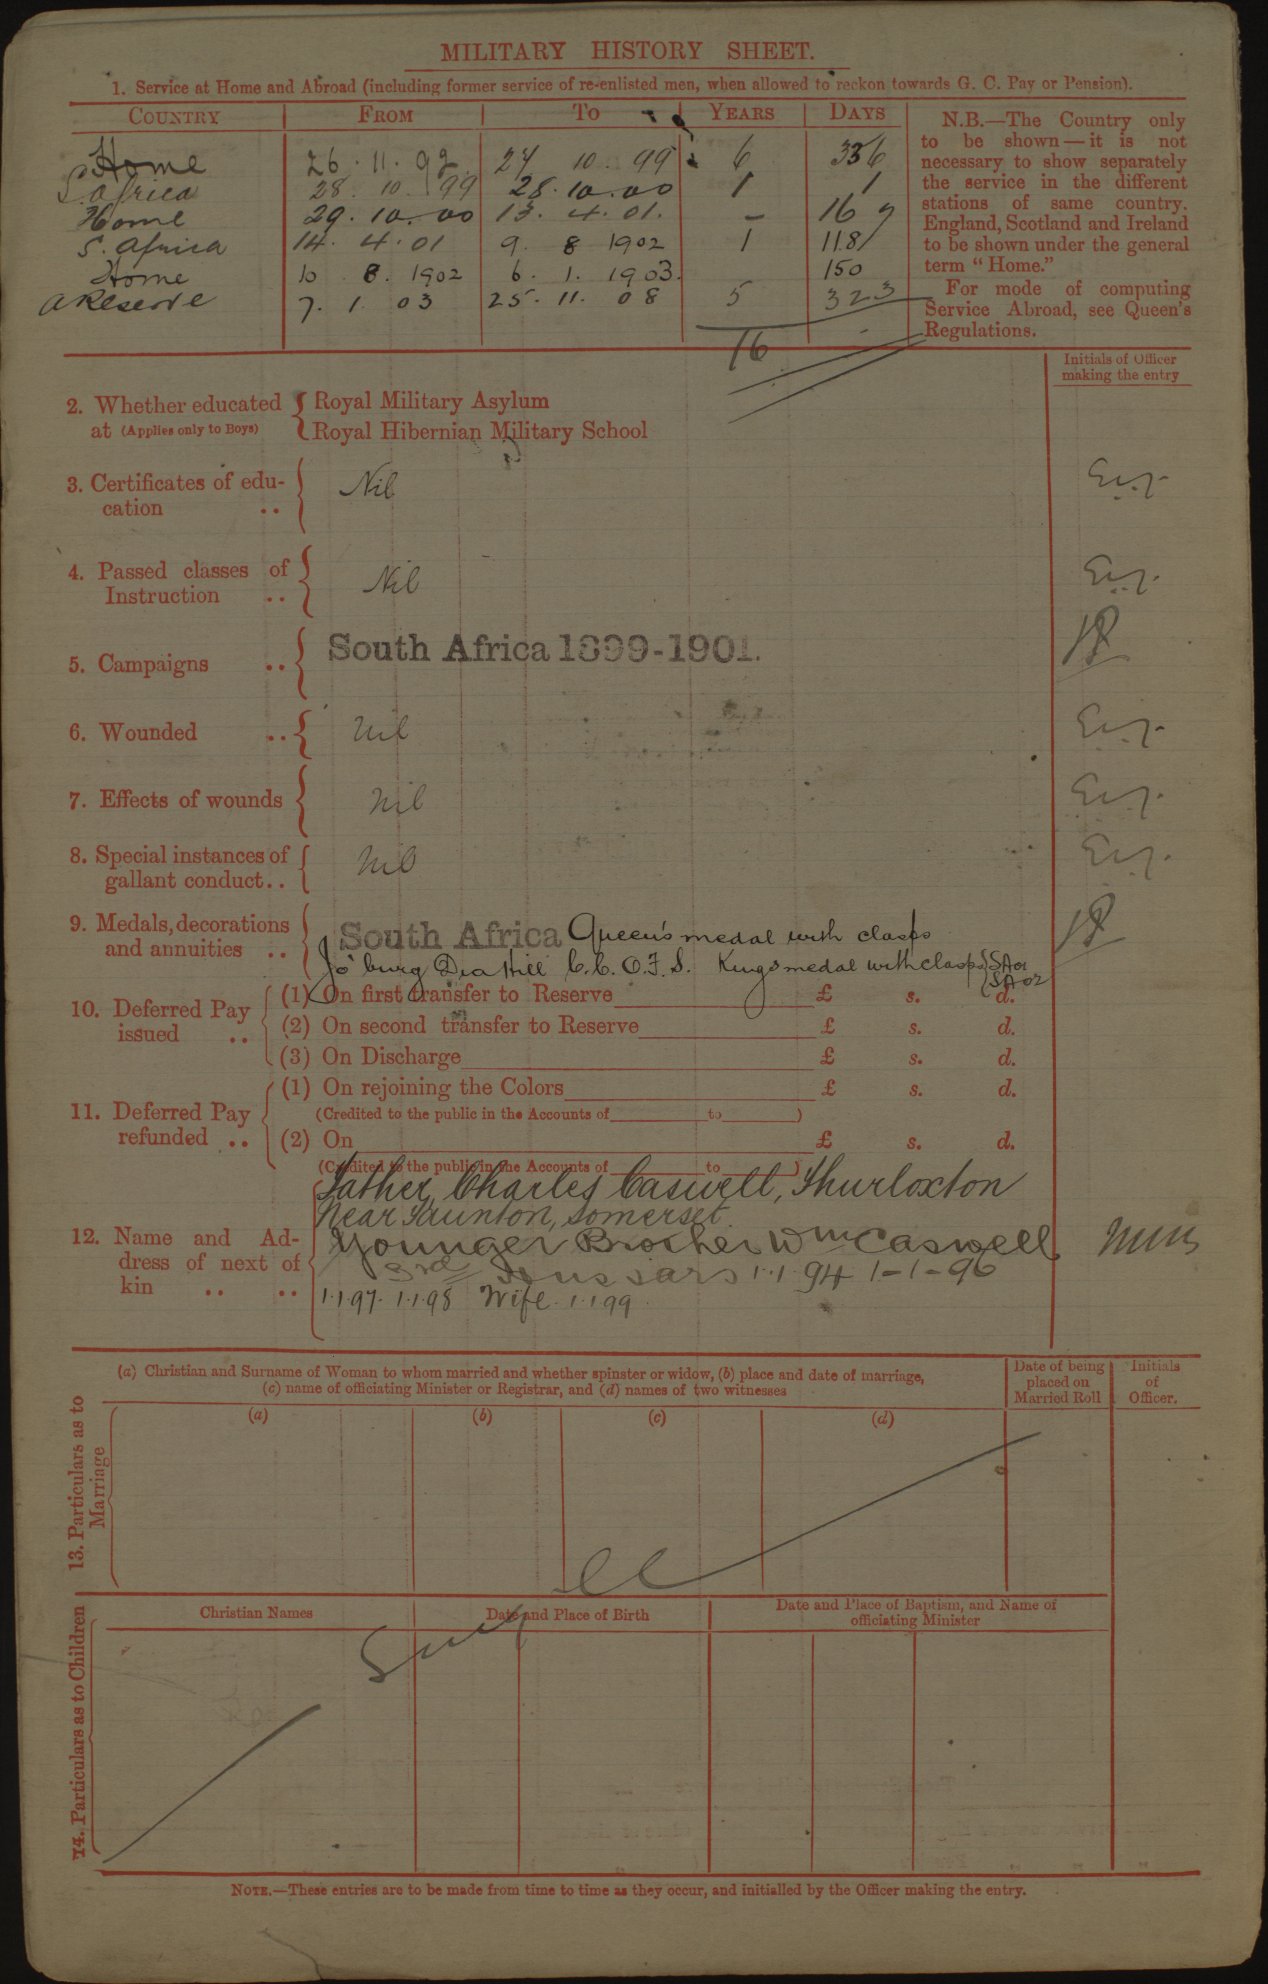 MILITARY HISTORY SHEET.
1. Service at Home and Abroad (including former service of re-enlisted men, when allowed to reckon towards G. C. Pay or Pension).
COUNTRY FROM TO YEARS DAYS
Home 26.11.92 27 10.99 6 336
S. Africa 28.10.99 28.10.00 1 1
Home 29.10.00 13.4.01. – 167
S. Africa 14.4.01 9.8 1902 1 118
Home 10 8.1902 6.1.1903. 150
A Reserve 7.1.03 25.11.08 5 323
16 -
N.B.—The Country only
to be shown—it is not
necessary to show separately
the service in the different
stations of same country.
England, Scotland and Ireland
to be shown under the general
term “Home.”
For mode of computing
Service Abroad, see Queen's
Regulations.
Initials of Officer
making the entry
2. Whether educated Royal Military Asylum
at (Applies only to Boys) Royal Hibernian Military School
3. Certificates of edu-
cation .. Nil
4. Passed classes of
Instruction .. Nil
5. Campaigns .. South Africa 1899-1901.
6. Wounded .. Nil
7. Effects of wounds Nil
8. Special instances of
gallant conduct.. Nil
9. Medals, decorations
and annuities .. South Africa Queen's medal with clasps
Jo'burg Dia Hill C.C. O.F.S. Kings medal with clasps SA 01
SA 02
10. Deferred Pay
issued ..
(1) On first transfer to Reserve £ s. d.
(2) On second transfer to Reserve £ s. d.
(3) On Discharge £ s. d.
11. Deferred Pay
refunded ..
(1) On rejoining the Colors £ s. d.
(Credited to the public in the Accounts of to )
(2) On £ s. d.
(Credited to the public in the Accounts of to )
12. Name and Ad-
dress of next of
kin .. ..
Father, Charles Caswell, Thurloxton
Near Taunton, Somerset.
Younger Brother Wm Caswell
3rd Hussars 1.1 94 1-1-96
1.1.97. 1.1.98 Wife. 1.1.99.
13. Particulars as to
Marriage
(a) Christian and Surname of Woman to whom married and whether spinster or widow, (b) place and date of marriage,
(c) name of officiating Minister or Registrar, and (d) names of two witnesses
Date of being
placed on
Married Roll
Initials
of
Officer.
(a) (b) (c) (d)
14. Particulars as to Children
Christian Names Date and Place of Birth Date and Place of Baptism, and Name of
officiating Minister
NOTE.—These entries are to be made from time to time as they occur, and initialled by the Officer making the entry.